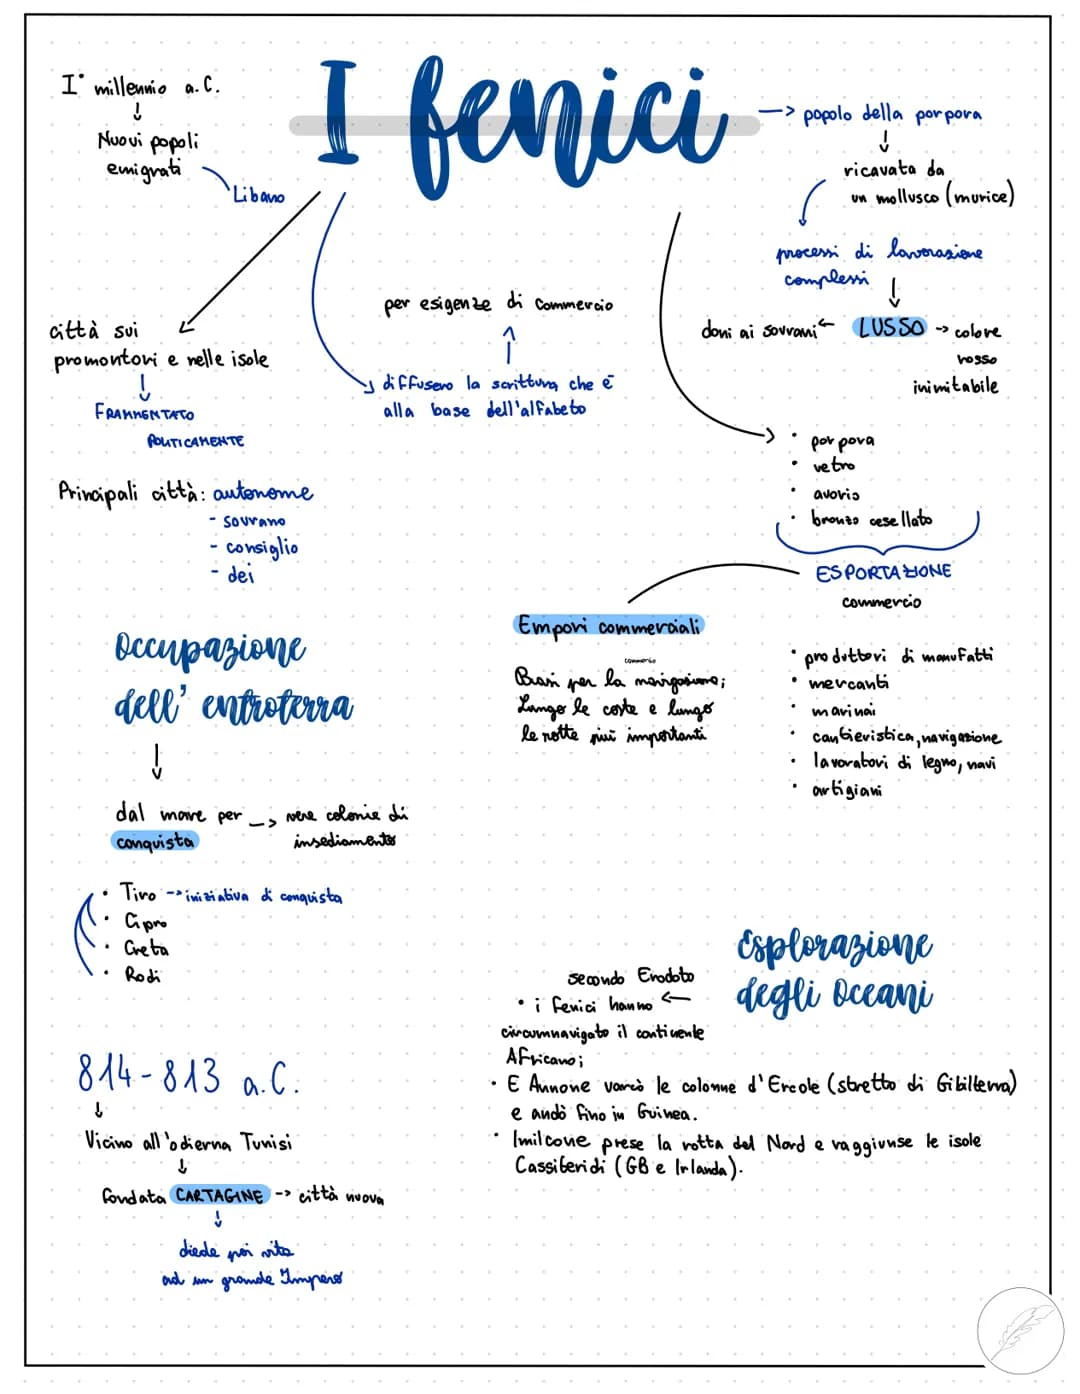 I fenici
I° millennio a.C.
↓
Nuovi popoli
emigrati
Libano
--> popolo della porpora
↓
ricavata da
un mollusco (murice)
processi di lavorazione
complessi
↓
doni ai sovrani ← LUSSO -> colore
rosso
inimitabile
città sui
promontori e nelle isole
↓
FRAMMENTATO
POLITICAMENTE
per esigenze di commercio
↑
diffusero la scrittura che è
alla base dell'alfabeto
Principali città: autonome
- sovrano
- consiglio
- dei
• porpora
• vetro
• avorio
• bronzo cesellato
ESPORTAZIONE
commercio
Empori commerciali
commercio
Basi per la navigazione;
Lungo le coste e lungo
le rotte più importanti
• produttori di manufatti
• mercanti
• marinai
• cantieristica, navigazione
• lavoratori di legno, navi
• artigiani
Occupazione
dell' entroterra
↓
dal mare per --> vere colonie di
conquista insediamento
• Tiro -> iniziativa di conquista
• Cipro
• Creta
• Rodi
Esplorazione
degli Oceani
secondo Erodoto
• i fenici hanno ←
circumnavigato il continente
Africano;
• E Annone varcò le colonne d'Ercole (stretto di Gibilterra)
e andò fino in Guinea.
• Imilcone prese la rotta del Nord e raggiunse le isole
Cassiteridi (GB e Irlanda).
814-813 a.C.
↓
Vicino all'odierna Tunisi
↓
fondata CARTAGINE -> città nuova
↓
diede poi vita
ad un grande Impero